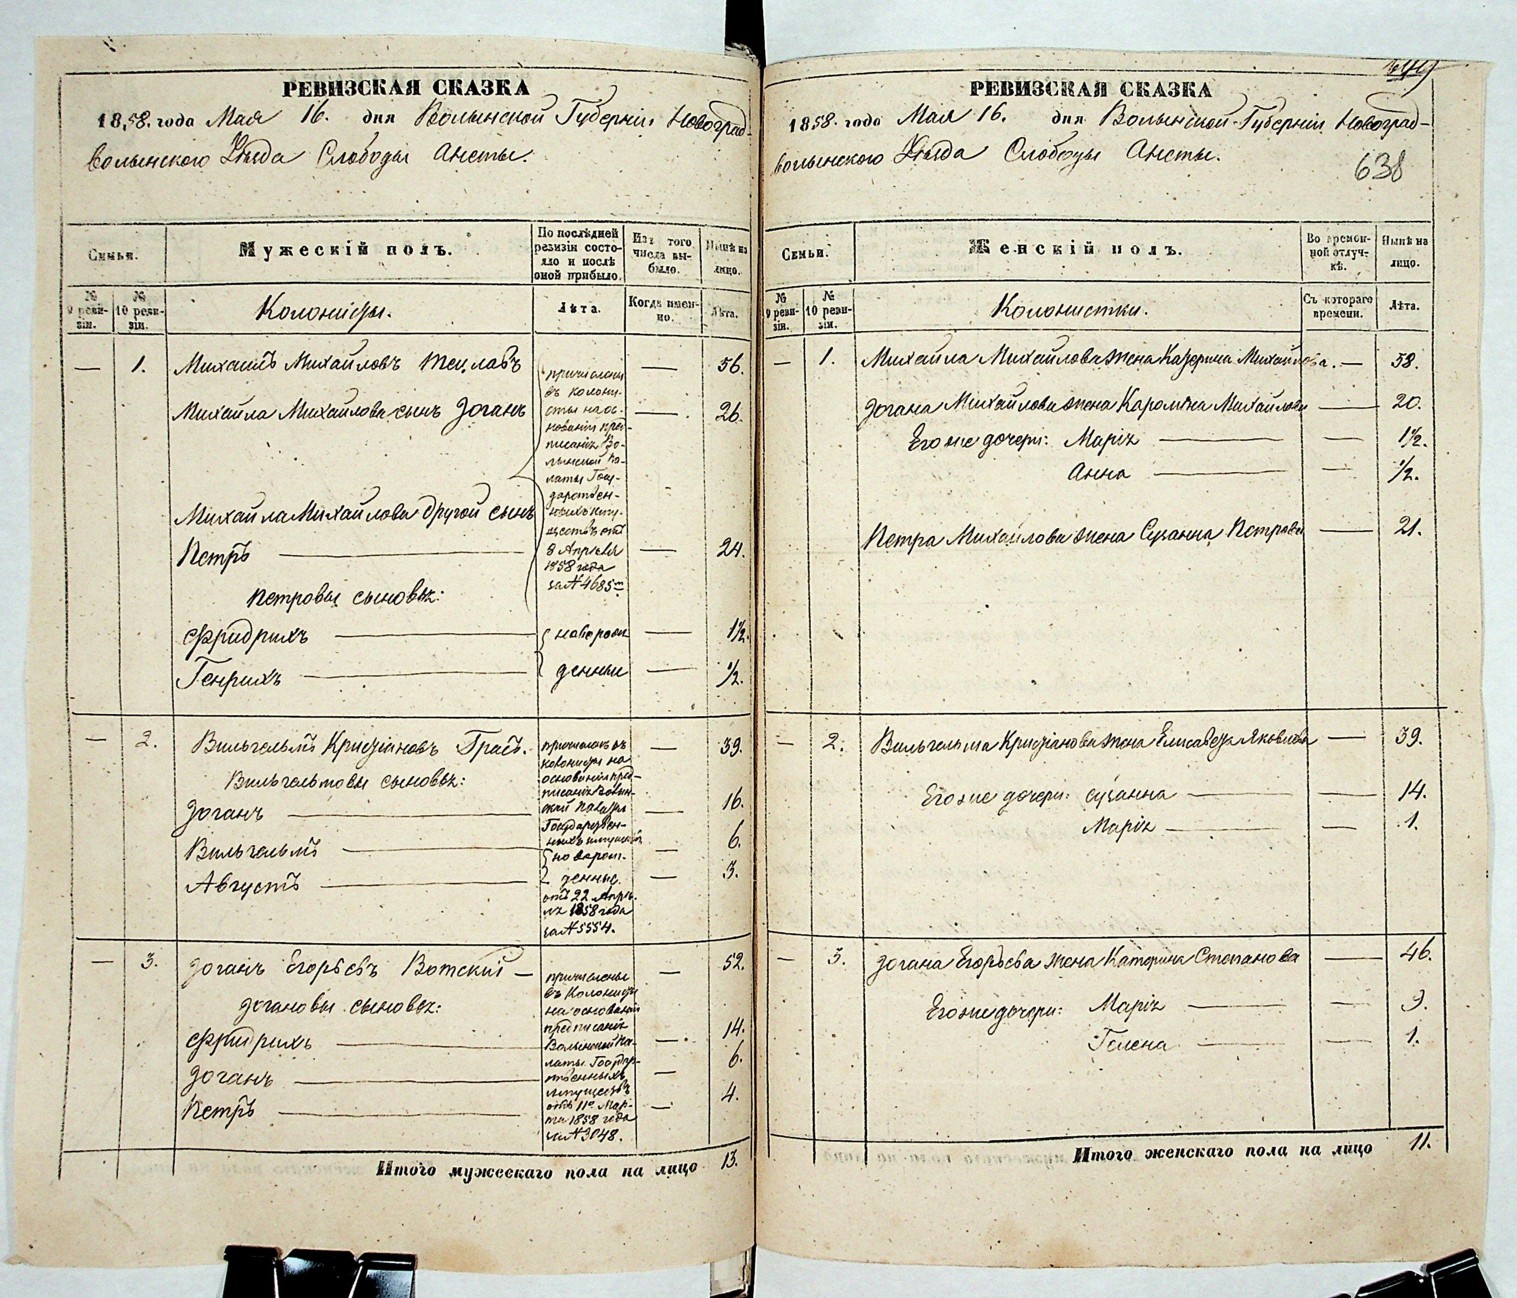 РЕВИЗСКАЯ СКАЗКА
1858. года Мая 16. дня Волынской Губерніи Новоград-
волынского Уѣзда Слободы Анеты.
Семьи.
Мужескій полъ.
По послѣдней ревизіи состояло и послѣ оной прибыло.
Изъ того числа выбыло.
Нынѣ на лицо.
№ 9 ревизіи.
№ 10 ревизіи.
Колонисты.
Лѣта.
Когда именно.
Лѣта.
— 1. Михаилъ Михайловъ — 56.
Михайла Михайлова сынъ Іоганъ — 26.
причислены
въ колони-
сты на ос-
нованіи пред-
писанія Во-
лынской Па-
латы Госу-
дарствен-
ныхъ иму-
ществъ отъ
8 Апрѣля
1858 года
за № 4685
Михайла Михайлова другой сынъ
Петръ — 24.
Петровы сыновья:
Фридрихъ — новорож — 1½.
Генрихъ — денные — ½.
— 2. Вильгельмъ Кристіановъ — 39.
Вильгельмовы сыновья:
Іоганъ — 16.
Вильгельмъ — 6.
Августъ — 3.
причисленъ въ
колонисты на
основаніи пред-
писанія Волын-
ской Палаты
Государствен-
ныхъ имуществъ
новорож-
денные.
отъ 22 Апрѣ-
ля 1858 года
за № 5554.
— 3. Іоганъ Егорьевъ Вотский — 52.
Іогановы сыновья:
Фридрихъ — 14.
Іоганъ — 6.
Петръ — 4.
причислены
въ Колонисты
на основаніи
предписанія
Волынской Па-
латы Государ-
ственныхъ
имуществъ
отъ 11го Мар-
та 1858 года
за № 3048.
Итого мужескаго пола на лицо 13.
РЕВИЗСКАЯ СКАЗКА
1858. года Мая 16. дня Волынской Губерніи Новоград-
волынского Уѣзда Слободы Анеты.
638
Семьи.
Женскій полъ.
Во временной отлучкѣ.
Нынѣ на лицо.
№ 9 ревизіи.
№ 10 ревизіи.
Колонистки.
Съ котораго времени.
Лѣта.
— 1. Михайла Михайлова жена Катерина Михайлова. — 58.
Іогана Михайлова жена Каролина Михайлова — 20.
Его же дочери: Марія — 1½.
Анна — ½.
Петра Михайлова жена Сузанна Петрова — 21.
— 2. Вильгельма Кристіанова жена Елисавета Яковлева — 39.
Его же дочери: Сузанна — 14.
Марія — 1.
— 3. Іогана Егорьева жена Катерина Степанова — 46.
Его же дочери: Марія — 9.
Гелена — 1.
Итого женскаго пола на лицо 11.